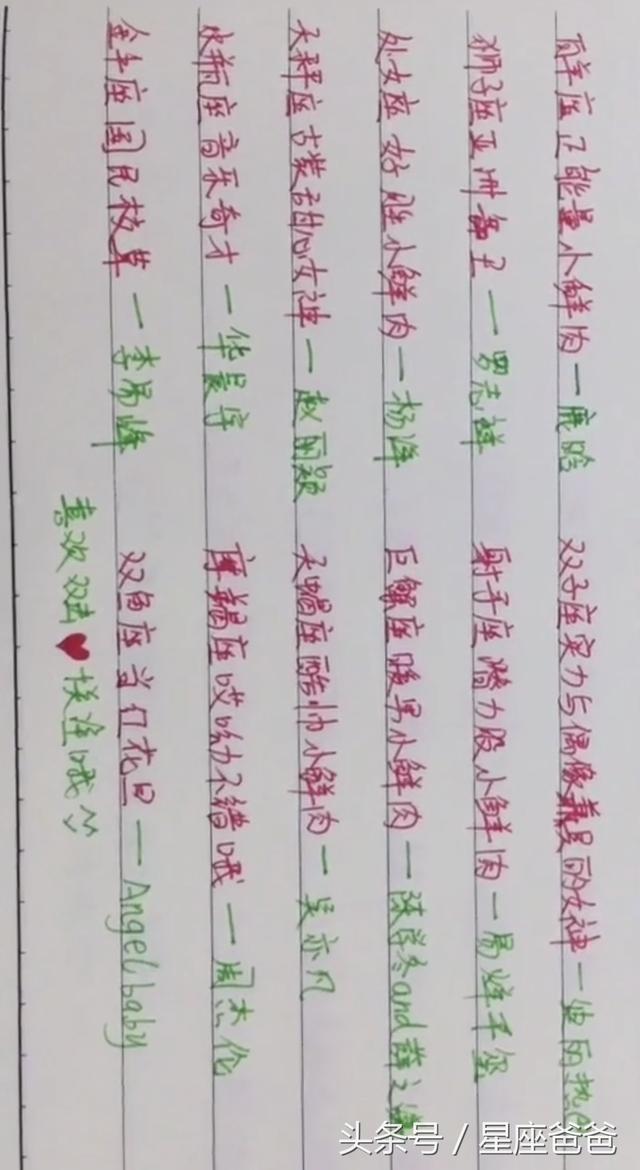 白羊座正能量小鲜肉一鹿晗 双子座实力与偶像兼具的女神一迪丽热巴
狮子座亚洲舞王一罗志祥 射手座潜力股小鲜肉一易烊千玺
处女座好胜小鲜肉一杨洋 巨蟹座暖男小鲜肉一陈学冬and薛之谦
天秤座古装甜心女神一赵丽颖 天蝎座酷帅小鲜肉一吴亦凡
水瓶座音乐奇才一华晨宇 摩羯座哎呦不错哦一周杰伦
金牛座国民校草一李易峰 双鱼座当红花旦—Angelbaby
喜欢双击❤关注哦
头条号 / 星座爸爸